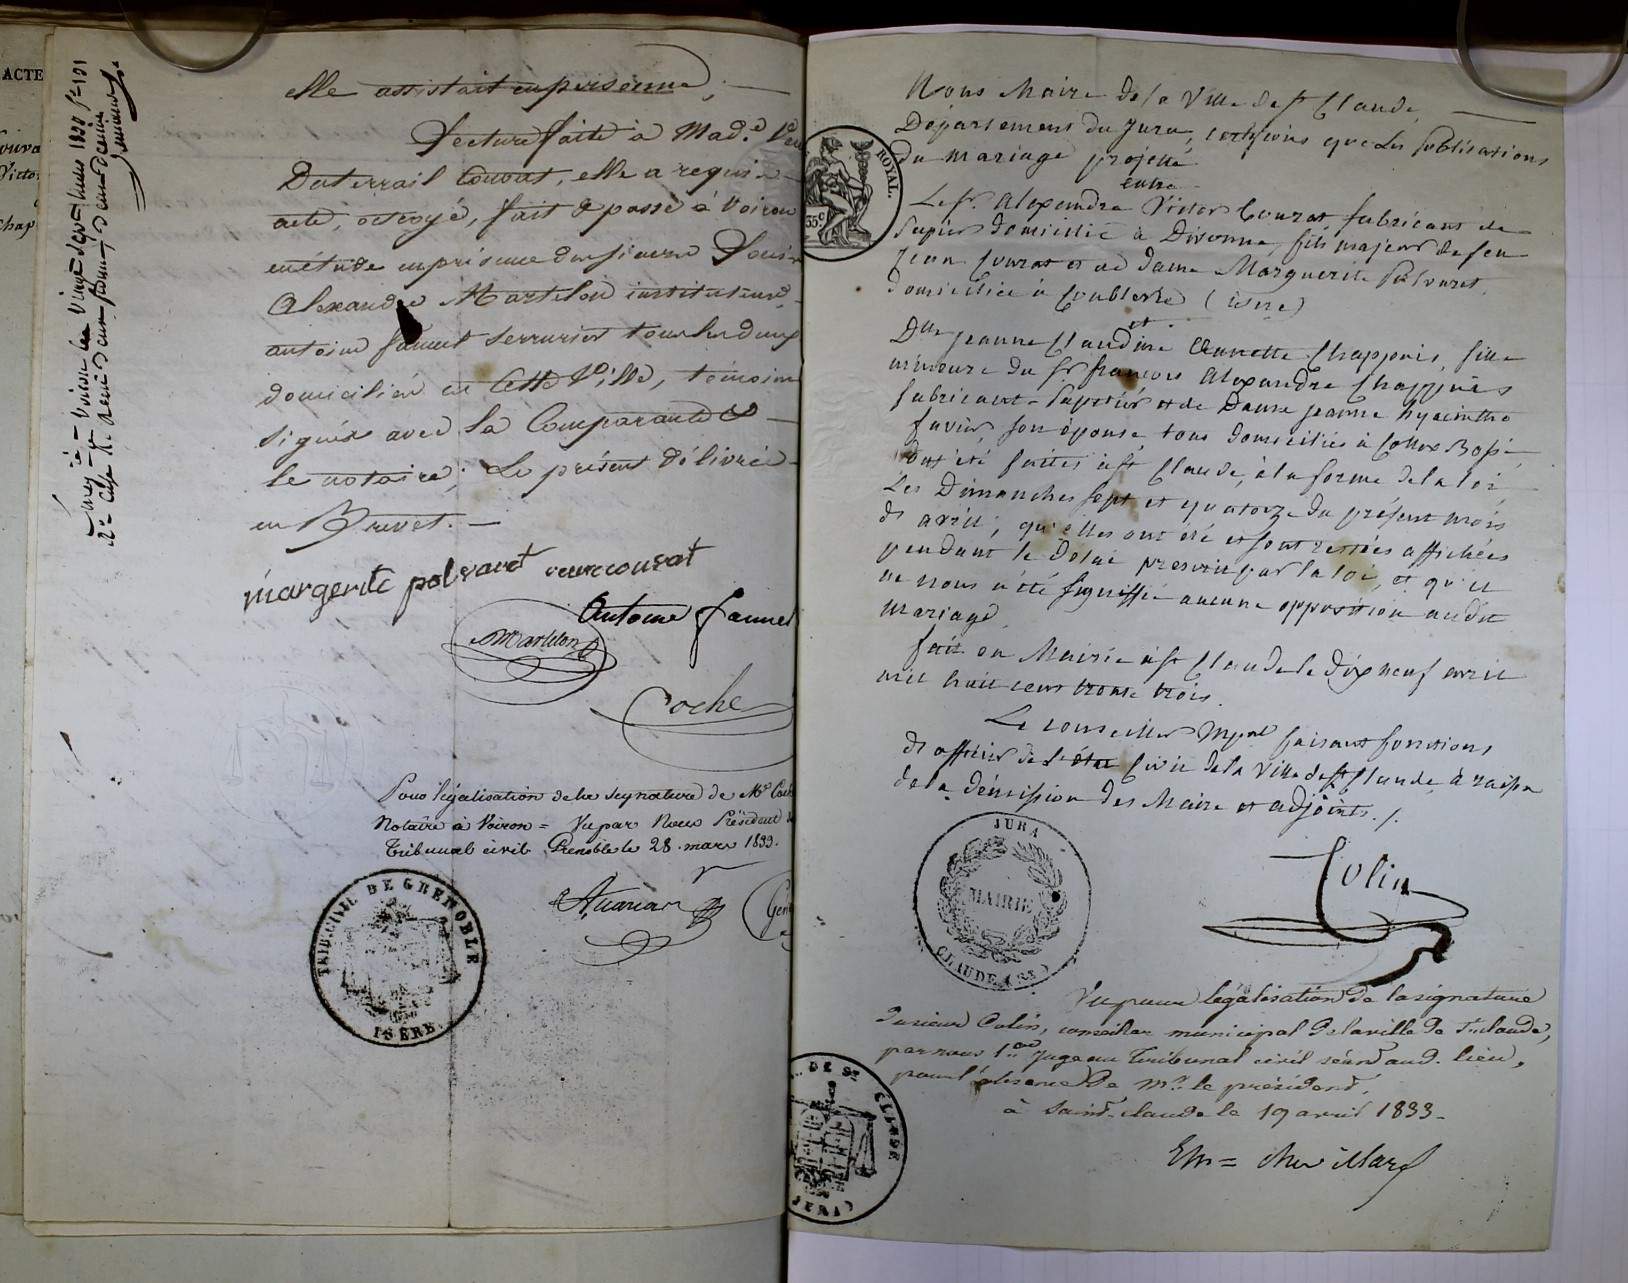 ACTE
elle assistait en personne;
Lecture faite à Mad.e V.e
Duterrail Couvat, elle a requis
acte, octroyé, fait & passé à Voiron
en étude en présence des sieurs Louis
Alexandre Martelon instituteur
antoine faunet serrurier tous les deux
domiciliés en Cette Ville, témoins
signés avec la Comparante &
le notaire; Le présent délivré
en Brevet.
margerite polvaret veuve couvat
Antoine faunet
Martelon
Coche
Pour légalisation de la signature de Me Coche
Notaire à Voiron = Vu par Nous Président du
Tribunal civil Grenoble le 28 mars 1833.
TRIB. CIVIL DE GRENOBLE
ISÈRE
Nous Maire de la Ville de St Claude,
Département du Jura, certifions que les publications
du mariage projetté
entre
Le sr. Alexandre Victor Couvat fabricant de
papier domicilié à Divonne, fils majeur de feu
Jean Couvat et de Dame Marguerite Polvaret,
domiciliée à Coublevie (isère)
et
Dlle Jeanne Claudine Annette Chappuis, fille
mineure du sr françois Alexandre Chappuis
fabricant papetier et de Dame jeanne hyacinthe
favier, son épouse, tous domiciliés à Collex Bossi,
ont été faites à St Claude, à la forme de la loi
Les Dimanches sept et quatorze du présent mois
de avril; qu'elles ont été et sont restées affichées
pendant le délai prescrit par la loi, et qu'il
ne nous a été signiffié aucune opposition au dit
mariage
fait en Mairie à St Claude le dix neuf avril
mil huit cent trente trois.
Le conseiller Mpal faisant fonctions
de officier de l'état Civil de la Ville de St Claude, à raison
de la démission des Maire et adjoints ./.
ROYAL.
35c
JURA
MAIRIE
CLAUDE
Colin
Vu pour légalisation de la signature
du sieur Colin, conseiller municipal de la ville de St claude,
par nous 1.er juge au Tribunal civil séant aud. lieu,
pour l'absence de Mr. le président,
à Saint-claude le 19 avril 1833.
DE St CLAUDE